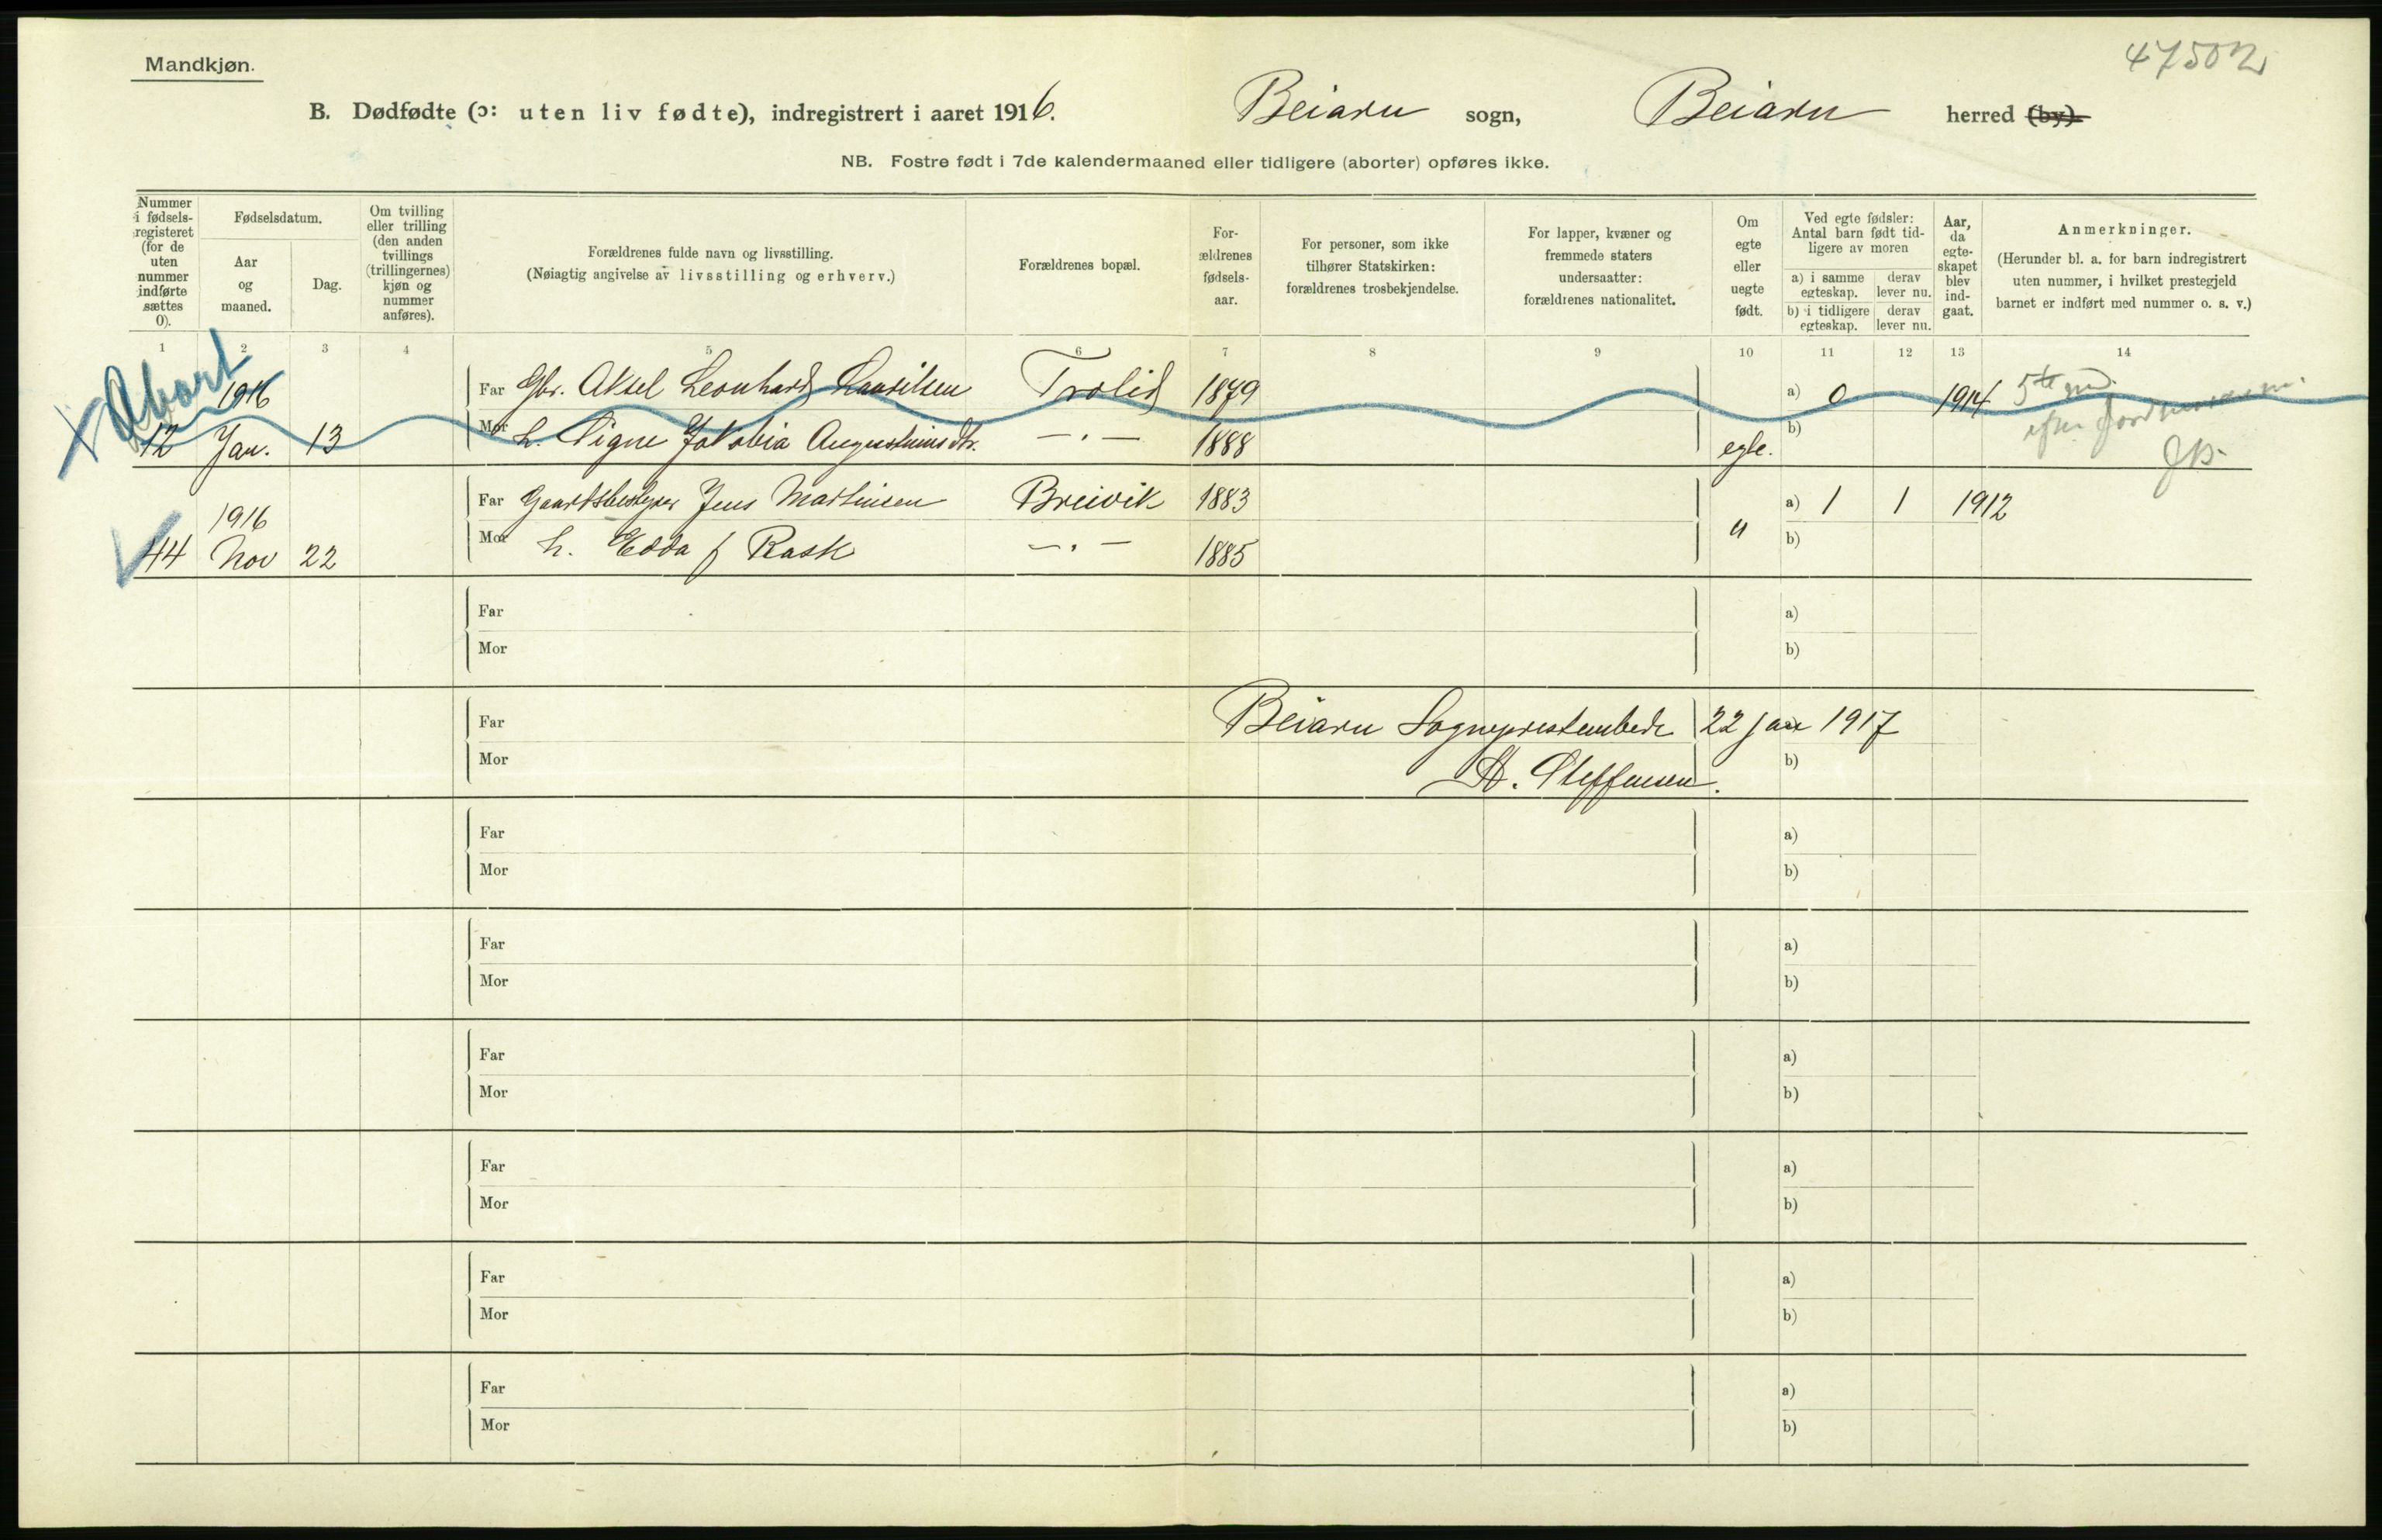 47502
Mandkjøn.
B. Dødfødte (ɔ: uten liv fødte), indregistrert i aaret 1916. Beiarn sogn, Beiarn herred (by).
NB. Fostre født i 7de kalendermaaned eller tidligere (aborter) opføres ikke.
Nummer
i fødsels-
registeret
(for de
uten
nummer
indførte
sættes
0).
Fødselsdatum.
Aar
og
maaned.
Dag.
Om tvilling
eller trilling
(den anden
tvillings
(trillingernes)
kjøn og
nummer
anføres).
Forældrenes fulde navn og livsstilling.
(Nøiagtig angivelse av livsstilling og erhverv.)
Forældrenes bopæl.
For-
ældrenes
fødsels-
aar.
For personer, som ikke
tilhører Statskirken:
forældrenes trosbekjendelse.
For lapper, kvæner og
fremmede staters
undersaatter:
forældrenes nationalitet.
Om
egte
eller
uegte
født.
Ved egte fødsler:
Antal barn født tid-
ligere av moren
a) i samme
egteskap.
derav
lever nu.
b) i tidligere
egteskap.
derav
lever nu.
Aar,
da
egte-
skapet
blev
ind-
gaat.
Anmerkninger.
(Herunder bl. a. for barn indregistrert
uten nummer, i hvilket prestegjeld
barnet er indført med nummer o. s. v.)
1 2 3 4 5 6 7 8 9 10 11 12 13 14
Abort
1916 Far Gbr. Aksel Leonhard Laurilsen Trolid 1879 a) 0 1914 5te md.
12 Jan. 13 Mor h. Signe Jakobia Augustinusdtr. — . — 1888 egte. b) efter
1916 Far Gaardsbestyrer Jens Martinsen Breivik 1883 a) 1 1 1912
44 Nov 22 Mor h. Edda f Rask — . — 1885 " b)
Far a)
Mor b)
Far Beiarn Sogneprestembede 22 jan 1917
Mor A. Steffensen. b)
Far a)
Mor b)
Far a)
Mor b)
Far a)
Mor b)
Far a)
Mor b)
Far a)
Mor b)
Far a)
Mor b)